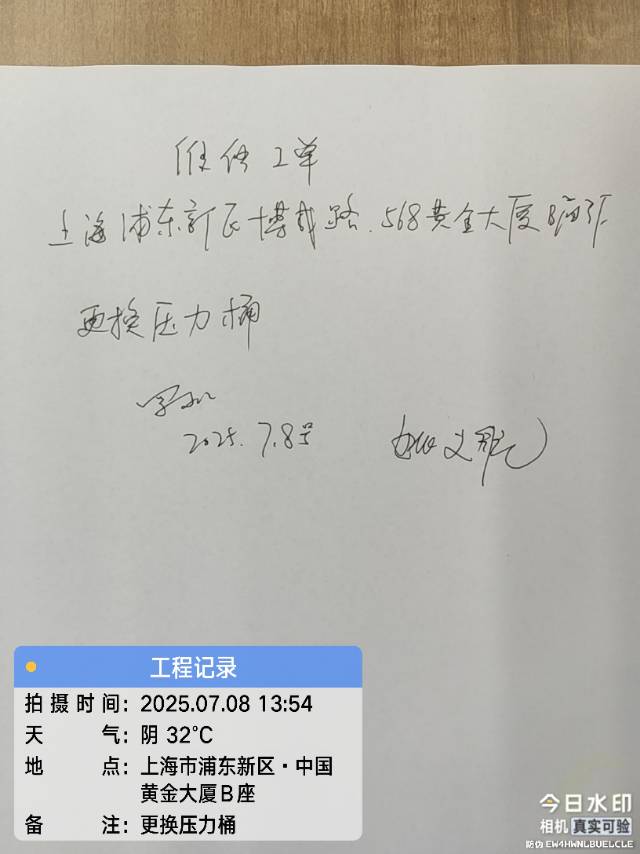 维修工单
上海浦东新区博成路.568黄金大厦B
更换压力桶
2025.7.8号
工程记录
拍摄时间: 2025.07.08 13:54
天气: 阴 32℃
地点: 上海市浦东新区·中国
黄金大厦B座
备注: 更换压力桶
今日水印
相机 真实可验
防伪 EW4HWNLBUELCLE